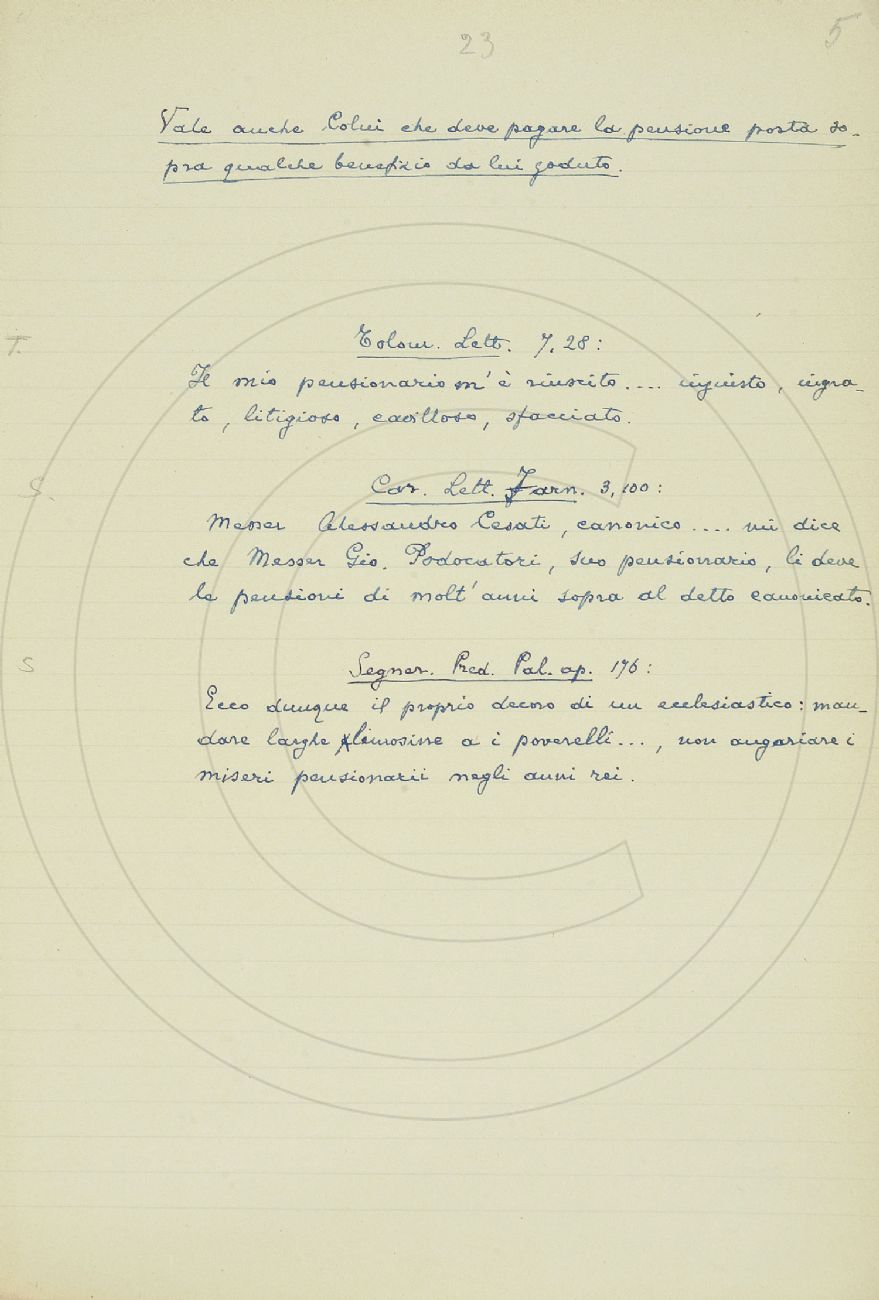 23
5
Vale anche Colui che deve pagare la pensione posta so-
pra qualche benefizio da lui goduto.
T.
Tolom. Lett. 7. 28:
Il mio pensionario m'è riuscito.... ingiusto, ingra-
to, litigioso, cavilloso, sfacciato.
S.
Car. Lett. Farn. 3, 100:
Messer Alessandro Cesati, canonico.... mi dice
che Messer Gio. Podocatori, suo pensionario, li deve
le pensioni di molt'anni sopra al detto canonicato.
S
Segner. Pred. Pal. ap. 176:
Ecco dunque il proprio decoro di un ecclesiastico: man-
dare larghe limosine a i poverelli..., non angariare i
miseri pensionarii negli anni rei.